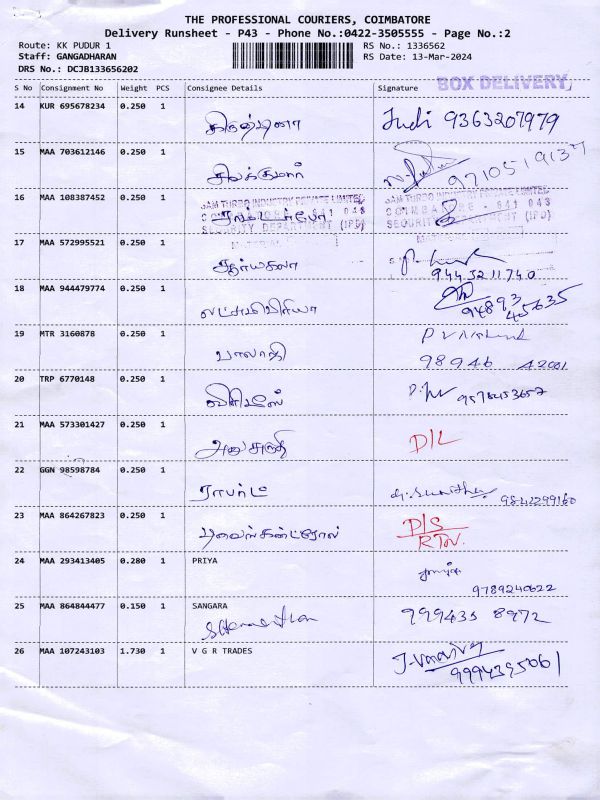 THE PROFESSIONAL COURIERS, COIMBATORE
Delivery Runsheet - P43 - Phone No.:0422-3505555 - Page No.:2
Route: KK PUDUR 1 RS No.: 1336562
Staff: GANGADHARAN RS Date: 13-Mar-2024
DRS No.: DCJB133656202
BOX DELIVERY
S No Consignment No Weight PCS Consignee Details Signature
14 KUR 695678234 0.250 1
9363207979
15 MAA 703612146 0.250 1
சிவக்குமார்
16 MAA 108387452 0.250 1
JAM TURBO INDUSTRY PRIVATE LIMITED JAM TURBO INDUSTRY PRIVATE LIMITED
COIMBATORE - 641 048 COIMBATORE - 641 048
SECURITY DEPARTMENT (IPD) SECURITY DEPARTMENT (IPD)
17 MAA 572995521 0.250 1
9443211740
18 MAA 944479774 0.250 1
லட்சுமிபிரியா 94893 45635
19 MTR 3160878 0.250 1
பாலாஜி 98946 42001
20 TRP 6770148 0.250 1
9578453657
21 MAA 573301427 0.250 1
D/L
22 GGN 98598784 0.250 1
ராபர்ட் G. Sunitha 9842299160
23 MAA 864267823 0.250 1
D/S
RTN.
24 MAA 293413405 0.280 1 PRIYA
9789240622
25 MAA 864844477 0.150 1 SANGARA
999435 8972
26 MAA 107243103 1.730 1 V G R TRADES
9994395061